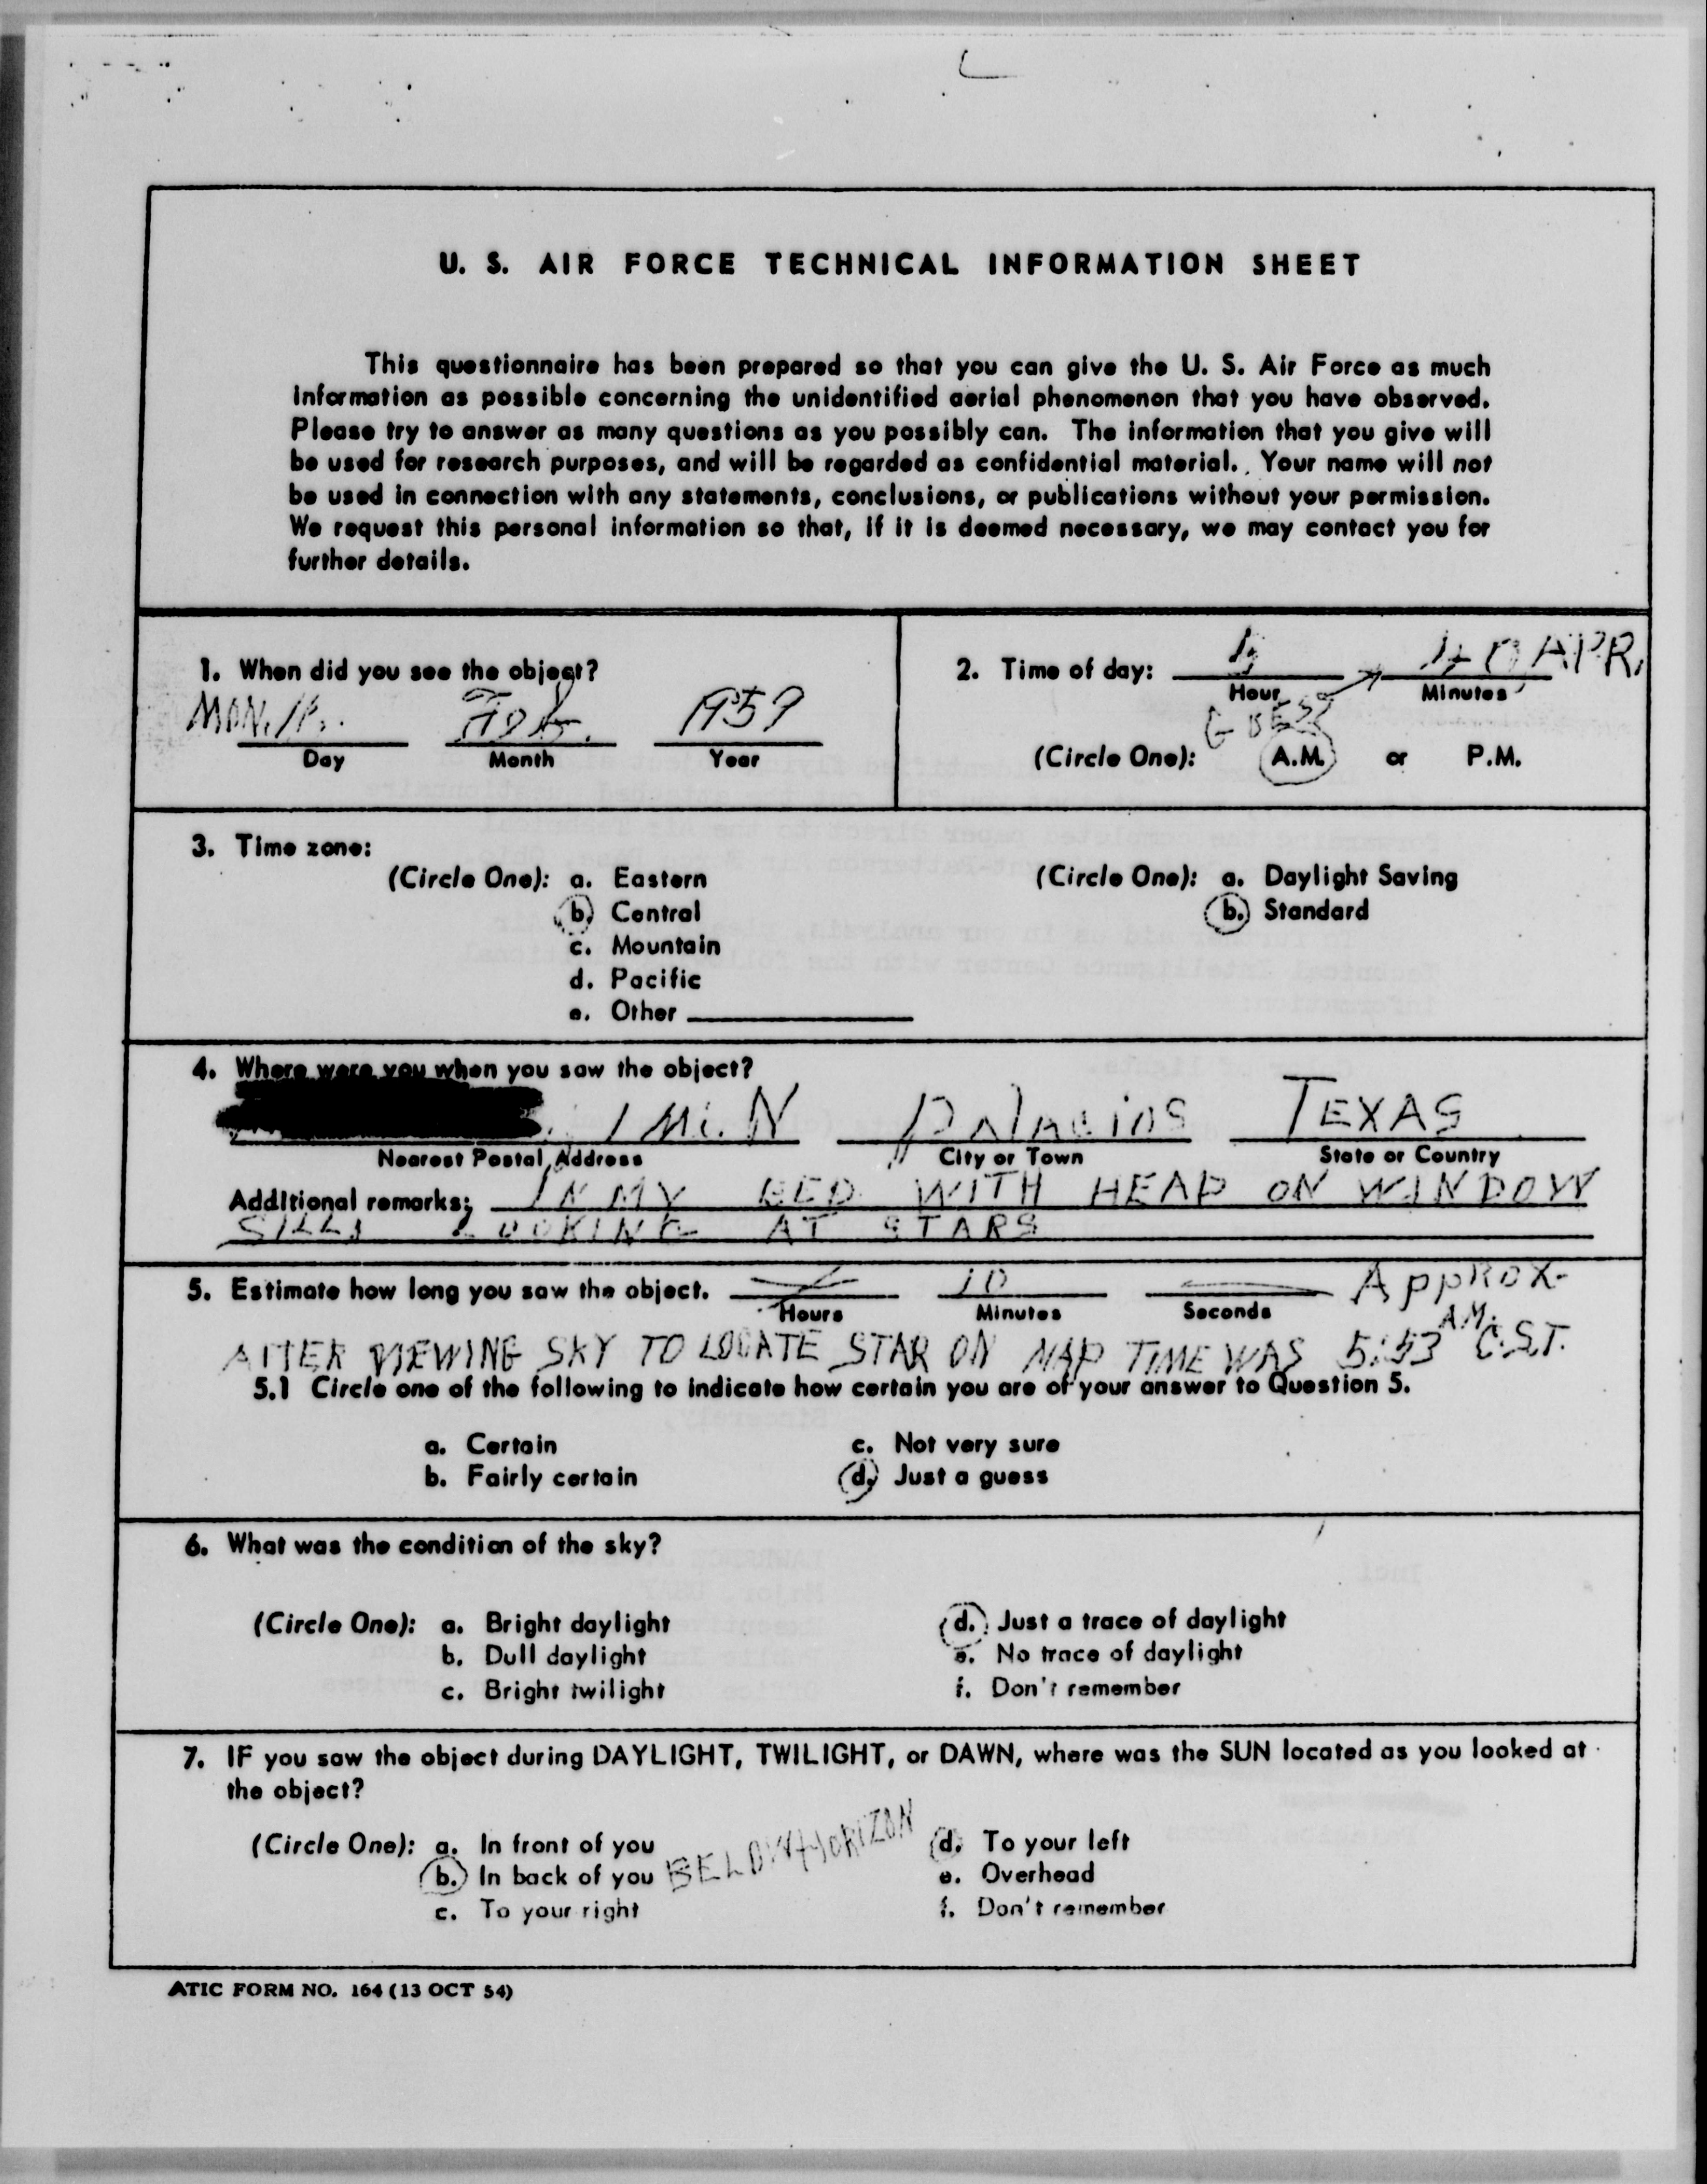 U. S. AIR FORCE TECHNICAL INFORMATION SHEET
This questionnaire has been prepared so that you can give the U. S. Air Force as much
information as possible concerning the unidentified aerial phenomenon that you have observed.
Please try to answer as many questions as you possibly can. The information that you give will
be used for research purposes, and will be regarded as confidential material. Your name will not
be used in connection with any statements, conclusions, or publications without your permission.
We request this personal information so that, if it is deemed necessary, we may contact you for
further details.
1. When did you see the object?
MON. Feb. 1959
Day Month Year
2. Time of day: 40 APR.
Hour Minutes
GUESS
(Circle One): A.M. or P.M.
3. Time zone:
(Circle One): a. Eastern
b. Central
c. Mountain
d. Pacific
e. Other
(Circle One): a. Daylight Saving
b. Standard
4. Where were you when you saw the object?
1 Mi. N Palacios TEXAS
Nearest Postal Address City or Town State or Country
Additional remarks: IN MY BED WITH HEAD ON WINDOW
SILL, LOOKING AT STARS
5. Estimate how long you saw the object. 10 Approx.
Hours Minutes Seconds
AFTER VIEWING SKY TO LOCATE STAR ON MAP TIME WAS 5:53 A.M. C.S.T.
5.1 Circle one of the following to indicate how certain you are of your answer to Question 5.
a. Certain
b. Fairly certain
c. Not very sure
d. Just a guess
6. What was the condition of the sky?
(Circle One): a. Bright daylight
b. Dull daylight
c. Bright twilight
d. Just a trace of daylight
e. No trace of daylight
f. Don't remember
7. IF you saw the object during DAYLIGHT, TWILIGHT, or DAWN, where was the SUN located as you looked at
the object?
(Circle One): a. In front of you
b. In back of you BELOW HORIZON
c. To your right
d. To your left
e. Overhead
f. Don't remember
ATIC FORM NO. 164 (13 OCT 54)